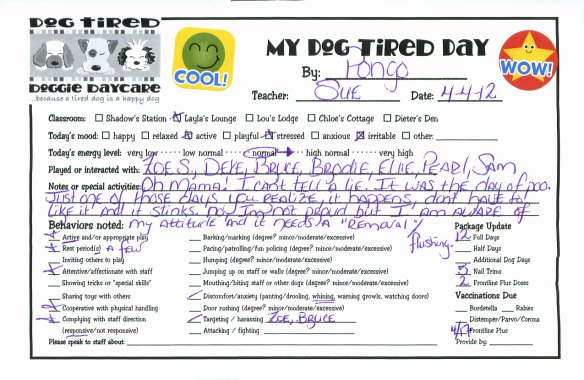 DOG TIRED
DOGGIE DAYCARE
...because a tired dog is a happy dog
COOL!
MY DOG TIRED DAY
WOW!
By: Pongo
Teacher: SUE Date: 4-4-12
Classroom: Shadow's Station Layla's Lounge Lou's Lodge Chloe's Cottage Dieter's Den
Today's mood: happy relaxed active playful stressed anxious irritable other:
Today's energy level: very low ····· low normal ····· normal ····· high normal ····· very high
Played or interacted with: ZOE S., DEKE, BRUCE, Brodie, Ellie, PEARL, SAM
Notes or special activities: Oh Mama! I can't tell a lie. It was the day of poo.
Just one of those days you realize, it happens, don't have to
like it and it stinks. No, I'm not proud but I am aware of
Behaviors noted: my attitude and it needs a "Removal"/
flushing.
Active and/or appropriate play
Rest period(s) a few
Inviting others to play
Attentive/affectionate with staff
Showing tricks or "special skills"
Sharing toys with others
Cooperative with physical handling
Complying with staff direction
(responsive/not responsive)
Barking/marking (degree? minor/moderate/excessive)
Pacing/patrolling/fun policing (degree? minor/moderate/excessive)
Humping (degree? minor/moderate/excessive)
Jumping up on staff or walls (degree? minor/moderate/excessive)
Mouthing/biting staff or other dogs (degree? minor/moderate/excessive)
Discomfort/anxiety (panting/drooling, whining, warning growls, watching doors)
Door rushing (degree? minor/moderate/excessive)
Targeting / harassing ZOE, BRUCE
Attacking / fighting
Package Update
12 Full Days
Half Days
Additional Dog Days
Nail Trims
2 Frontline Plus Doses
Vaccinations Due
Bordetella Rabies
Distemper/Parvo/Corona
Frontline Plus
Please speak to staff about: Provide by: